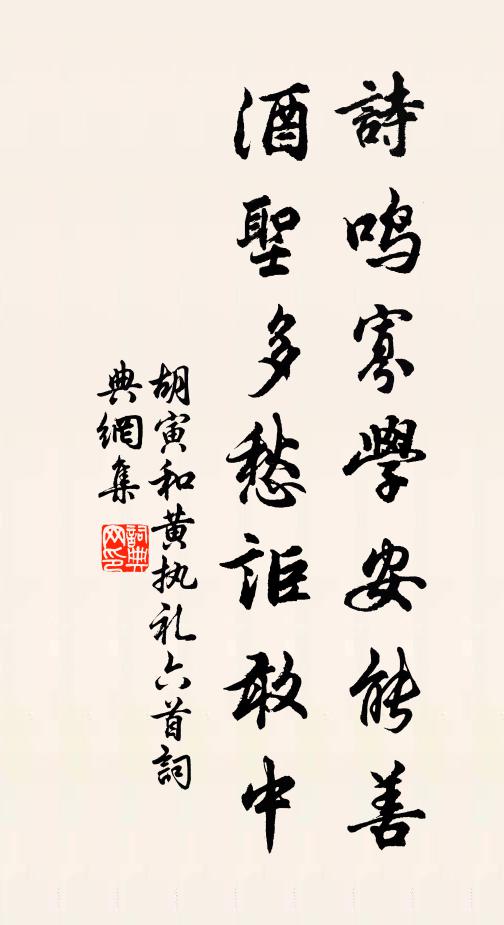 詩鸣寡學安能善
酒聖多愁詎敢中
胡寅和黄执礼六首詞
典網集
詞典
网印